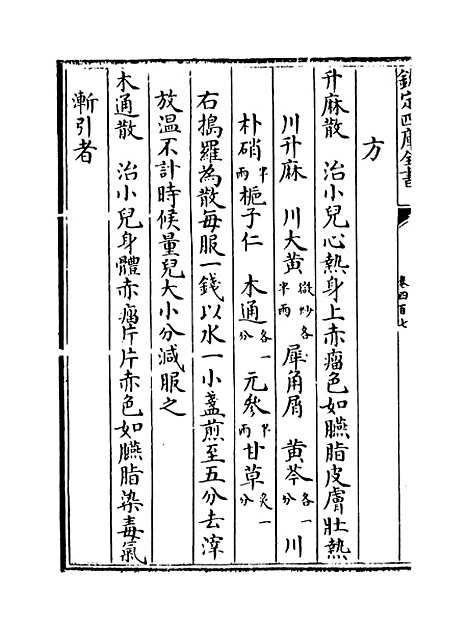 欽定四庫全書
卷四百七
方
升麻散　治小兒心熱身上赤瘤色如臙脂皮膚壯熱
川升麻　川大黄微炒各半兩　犀角屑　黄芩各一分　川
朴硝半兩　梔子仁　木通各一分　元參半兩　甘草炙一分
右搗羅為散每服一錢以水一小盞煎至五分去滓
放温不計時候量兒大小分減服之
木通散　治小兒身體赤瘤片片赤色如臙脂染毒氣
漸引者